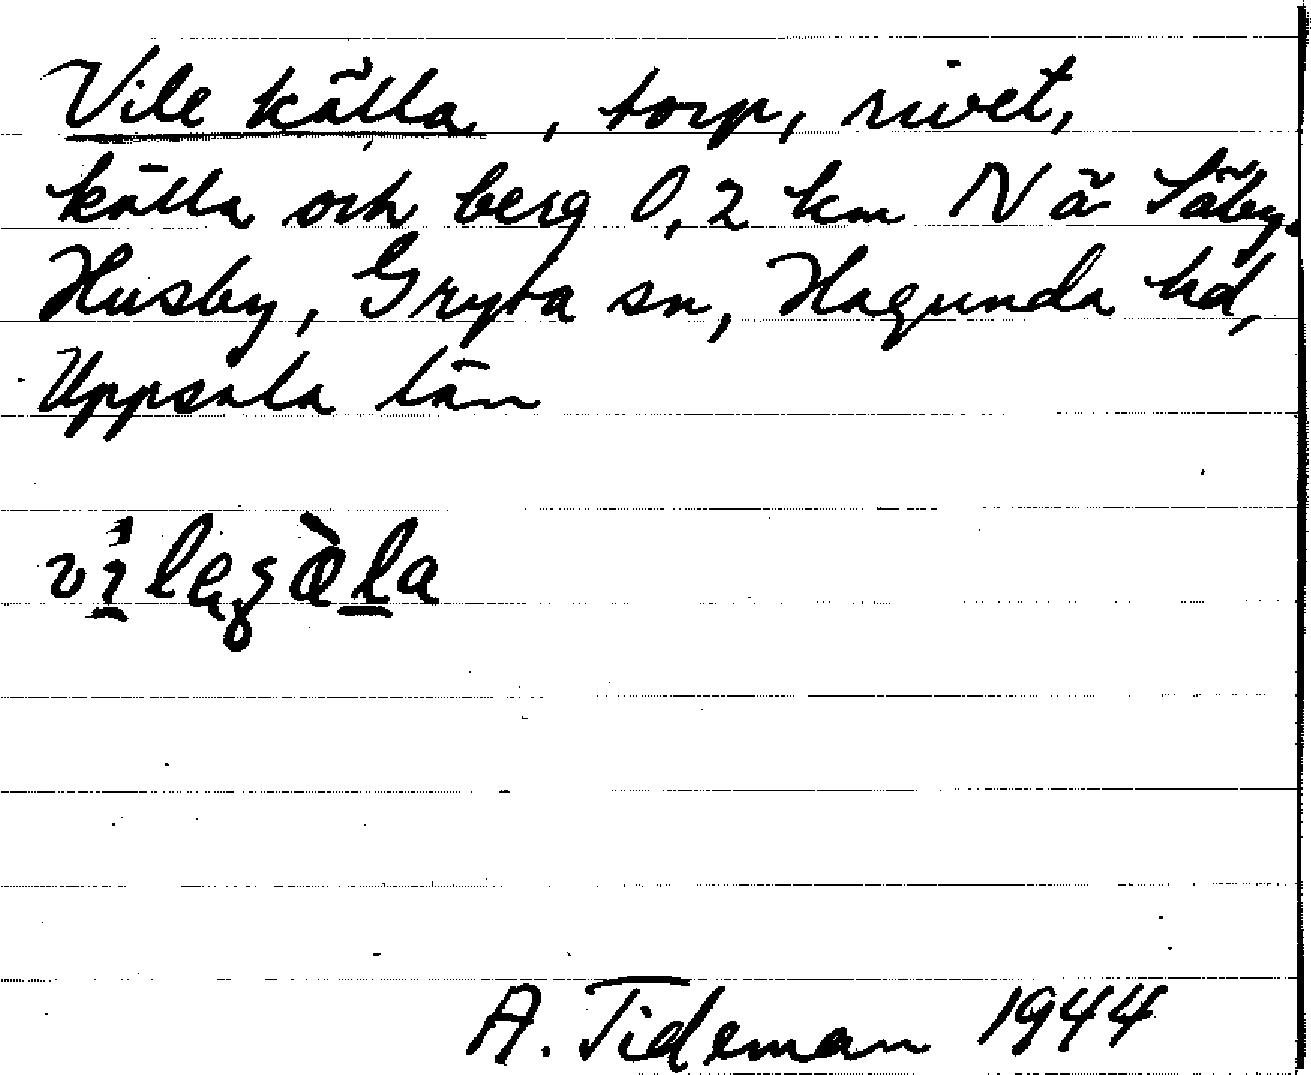 Vile källa, torp, rivet,
källa och berg 0,2 km N å Säby.
Husby, Gryta sn, Hagunda hd,
Uppsala län
A. Tideman 1944